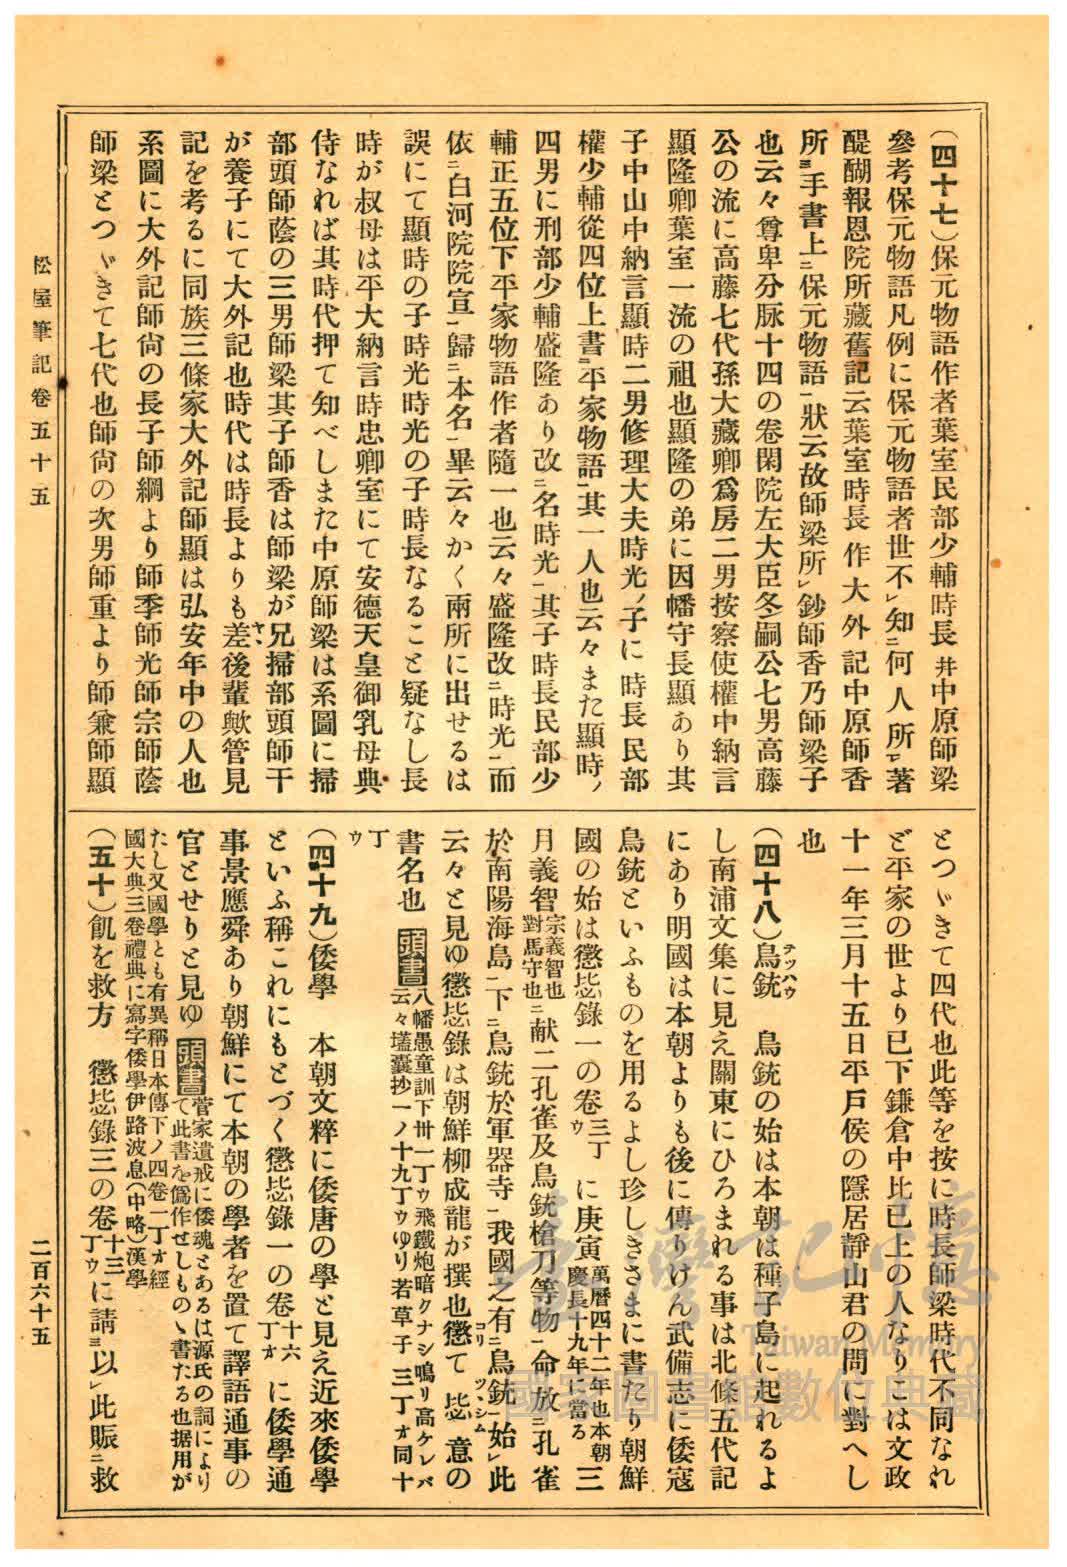 (四十七)保元物語作者葉室民部少輔時長幷中原師梁
參考保元物語凡例に保元物語者世不レ知ニ何人所一レ著
醍醐報恩院所藏舊記云葉室時長作大外記中原師香
所ニ手書上ニ保元物語一狀云故師梁所レ鈔師香乃師梁子
也云々尊卑分脉十四の卷閑院左大臣冬嗣公七男高藤
公の流に高藤七代孫大藏卿爲房二男按察使權中納言
顯隆卿葉室一流の祖也顯隆の弟に因幡守長顯あり其
子中山中納言顯時二男修理大夫時光ノ子に時長民部
權少輔從四位上書ニ平家物語一其一人也云々また顯時ノ
四男に刑部少輔盛隆あり改ニ名時光一其子時長民部少
輔正五位下平家物語作者隨一也云々盛隆改ニ時光一而
依ニ白河院院宣一歸ニ本名一畢云々かく兩所に出せるは
誤にて顯時の子時光時光の子時長なること疑なし長
時が叔母は平大納言時忠卿室にて安德天皇御乳母典
侍なれば其時代押て知べしまた中原師梁は系圖に掃
部頭師蔭の三男師梁其子師香は師梁が兄掃部頭師干
が養子にて大外記也時代は時長よりも差後輩歟管見
記を考るに同族三條家大外記師顯は弘安年中の人也
系圖に大外記師尙の長子師綱より師季師光師宗師蔭
師梁とつゞきて七代也師尙の次男師重より師兼師顯
とつゞきて四代也此等を按に時長師梁時代不同なれ
ど平家の世より已下鎌倉中比已上の人なりこは文政
十一年三月十五日平戶侯の隱居靜山君の問に對へし
也
(四十八)鳥銃テツハウ 鳥銃の始は本朝は種子島に起れるよ
し南浦文集に見え關東にひろまれる事は北條五代記
にあり明國は本朝よりも後に傳りけん武備志に倭寇
鳥銃といふものを用るよし珍しきさまに書たり朝鮮
國の始は懲毖錄一の卷三丁ウに庚寅萬曆四十二年也本朝慶長十九年に當る三
月義智宗義智也對馬守也ニ献二孔雀及鳥銃槍刀等物一命放ニ孔雀
於南陽海島一下ニ鳥銃於軍器寺一我國之有ニ鳥銃一始レ此
云々と見ゆ懲毖錄は朝鮮柳成龍が撰也懲コリて毖ツヽシム意の
書名也 頭書八幡愚童訓下卅一丁ウ飛鐵炮暗クナシ鳴リ高ケレバ云々壒囊抄一ノ十九丁ウゆり若草子三丁オ同十
丁ウ
(四十九)倭學 本朝文粹に倭唐の學と見え近來倭學
といふ稱これにもとづく懲毖錄一の卷十六丁オに倭學通
事景應舜あり朝鮮にて本朝の學者を置て譯語通事の
官とせりと見ゆ 頭書菅家遺戒に倭魂とあるは源氏の詞によりて此書を僞作せしものゝ書たる也据用が
たし又國學とも有異稱日本傳下ノ四卷一丁オ經國大典三卷禮典に寫字倭學伊路波息(中略)漢學
(五十)飢を救方 懲毖錄三の卷十三丁ウに請ヨ以レ此賑ニ救
松屋筆記卷五十五
二百六十五
臺灣記憶
Taiwan Memory
國家圖書館數位典藏